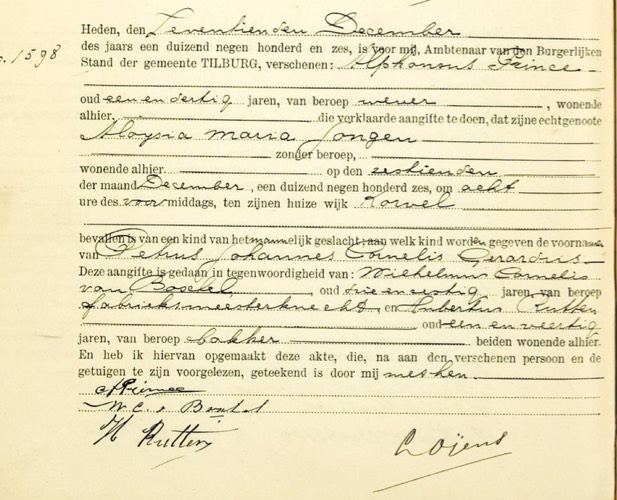 Heden, den Zeventienden December
des jaars een duizend negen honderd en zes, is voor mij, Ambtenaar van den Burgerlijken
N. 1598 Stand der gemeente TILBURG, verschenen: Alphonsus Prince
oud een en dertig jaren, van beroep wever, wonende
alhier, die verklaarde aangifte te doen, dat zijne echtgenoote
Aloysia Maria Jongen
zonder beroep,
wonende alhier. op den zestienden
der maand December, een duizend negen honderd zes, om acht
ure des voormiddags, ten zijnen huize wijk Korvel
bevallen is van een kind van het mannelijk geslacht; aan welk kind worden gegeven de voornamen
van Petrus Johannes Cornelis Gerardus
Deze aangifte is gedaan in tegenwoordigheid van: Wilhelmus Cornelis
van Boxtel, oud drie en veertig jaren, van beroep
fabrieksmeesterknecht, en Hubertus Rutten
oud een en veertig
jaren, van beroep bakker beiden wonende alhier.
En heb ik hiervan opgemaakt deze akte, die, na aan den verschenen persoon en de
getuigen te zijn voorgelezen, geteekend is door mij met hen.
A Prince
W. C. v Boxtel
H Rutten